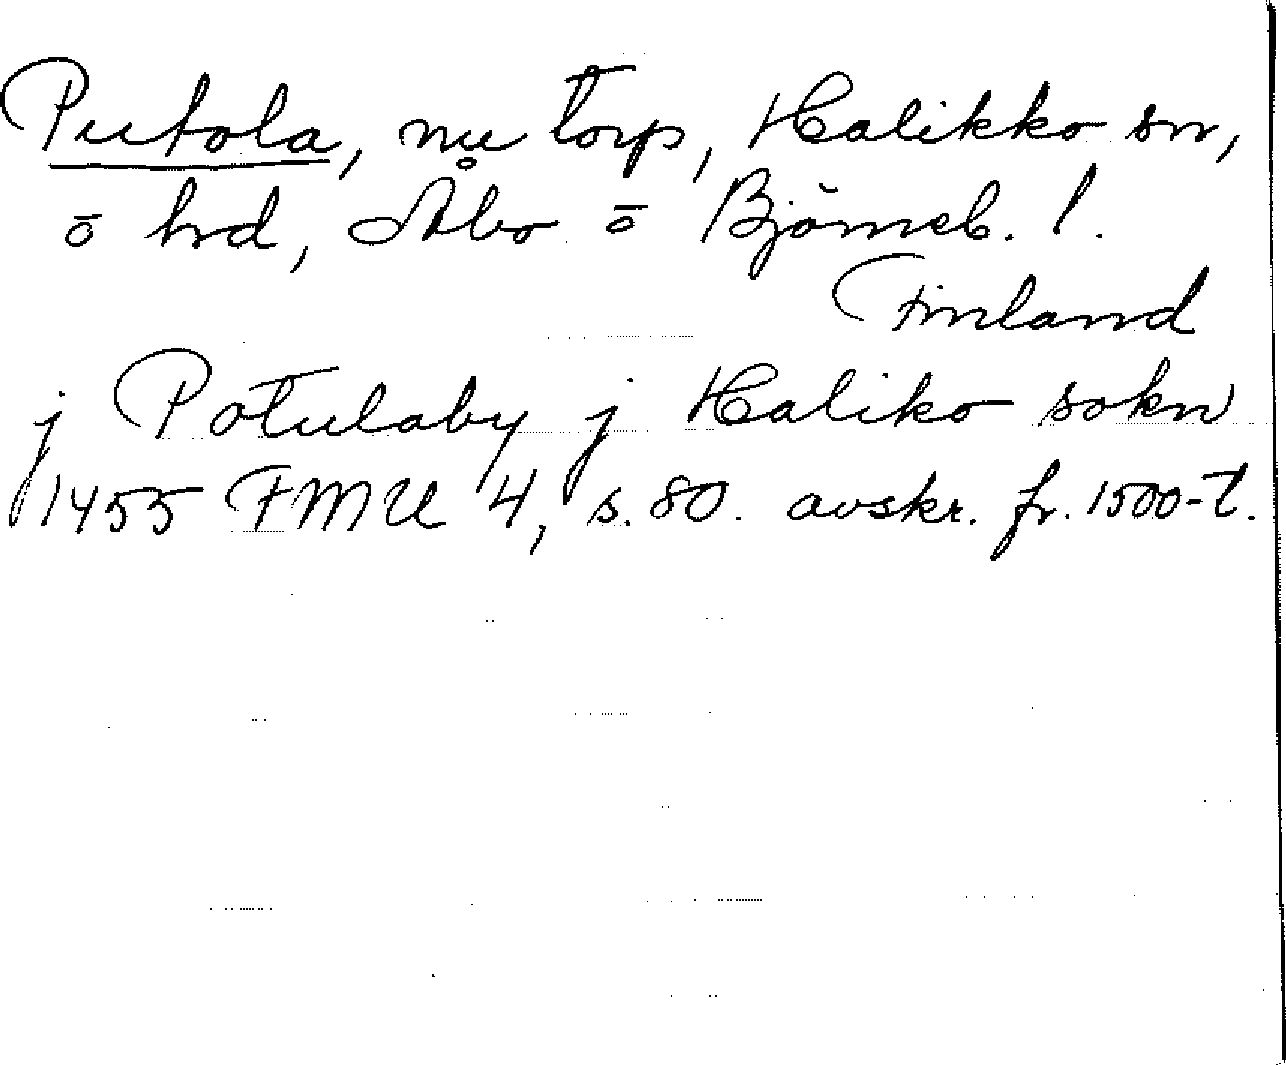 Putola, nu torp, Halikko sn,
o hd, Åbo o Björneb. l.
Finland
j Potulaby j Haliko sokn
1455 FMU 4, s. 80. avskr. fr. 1500-t.